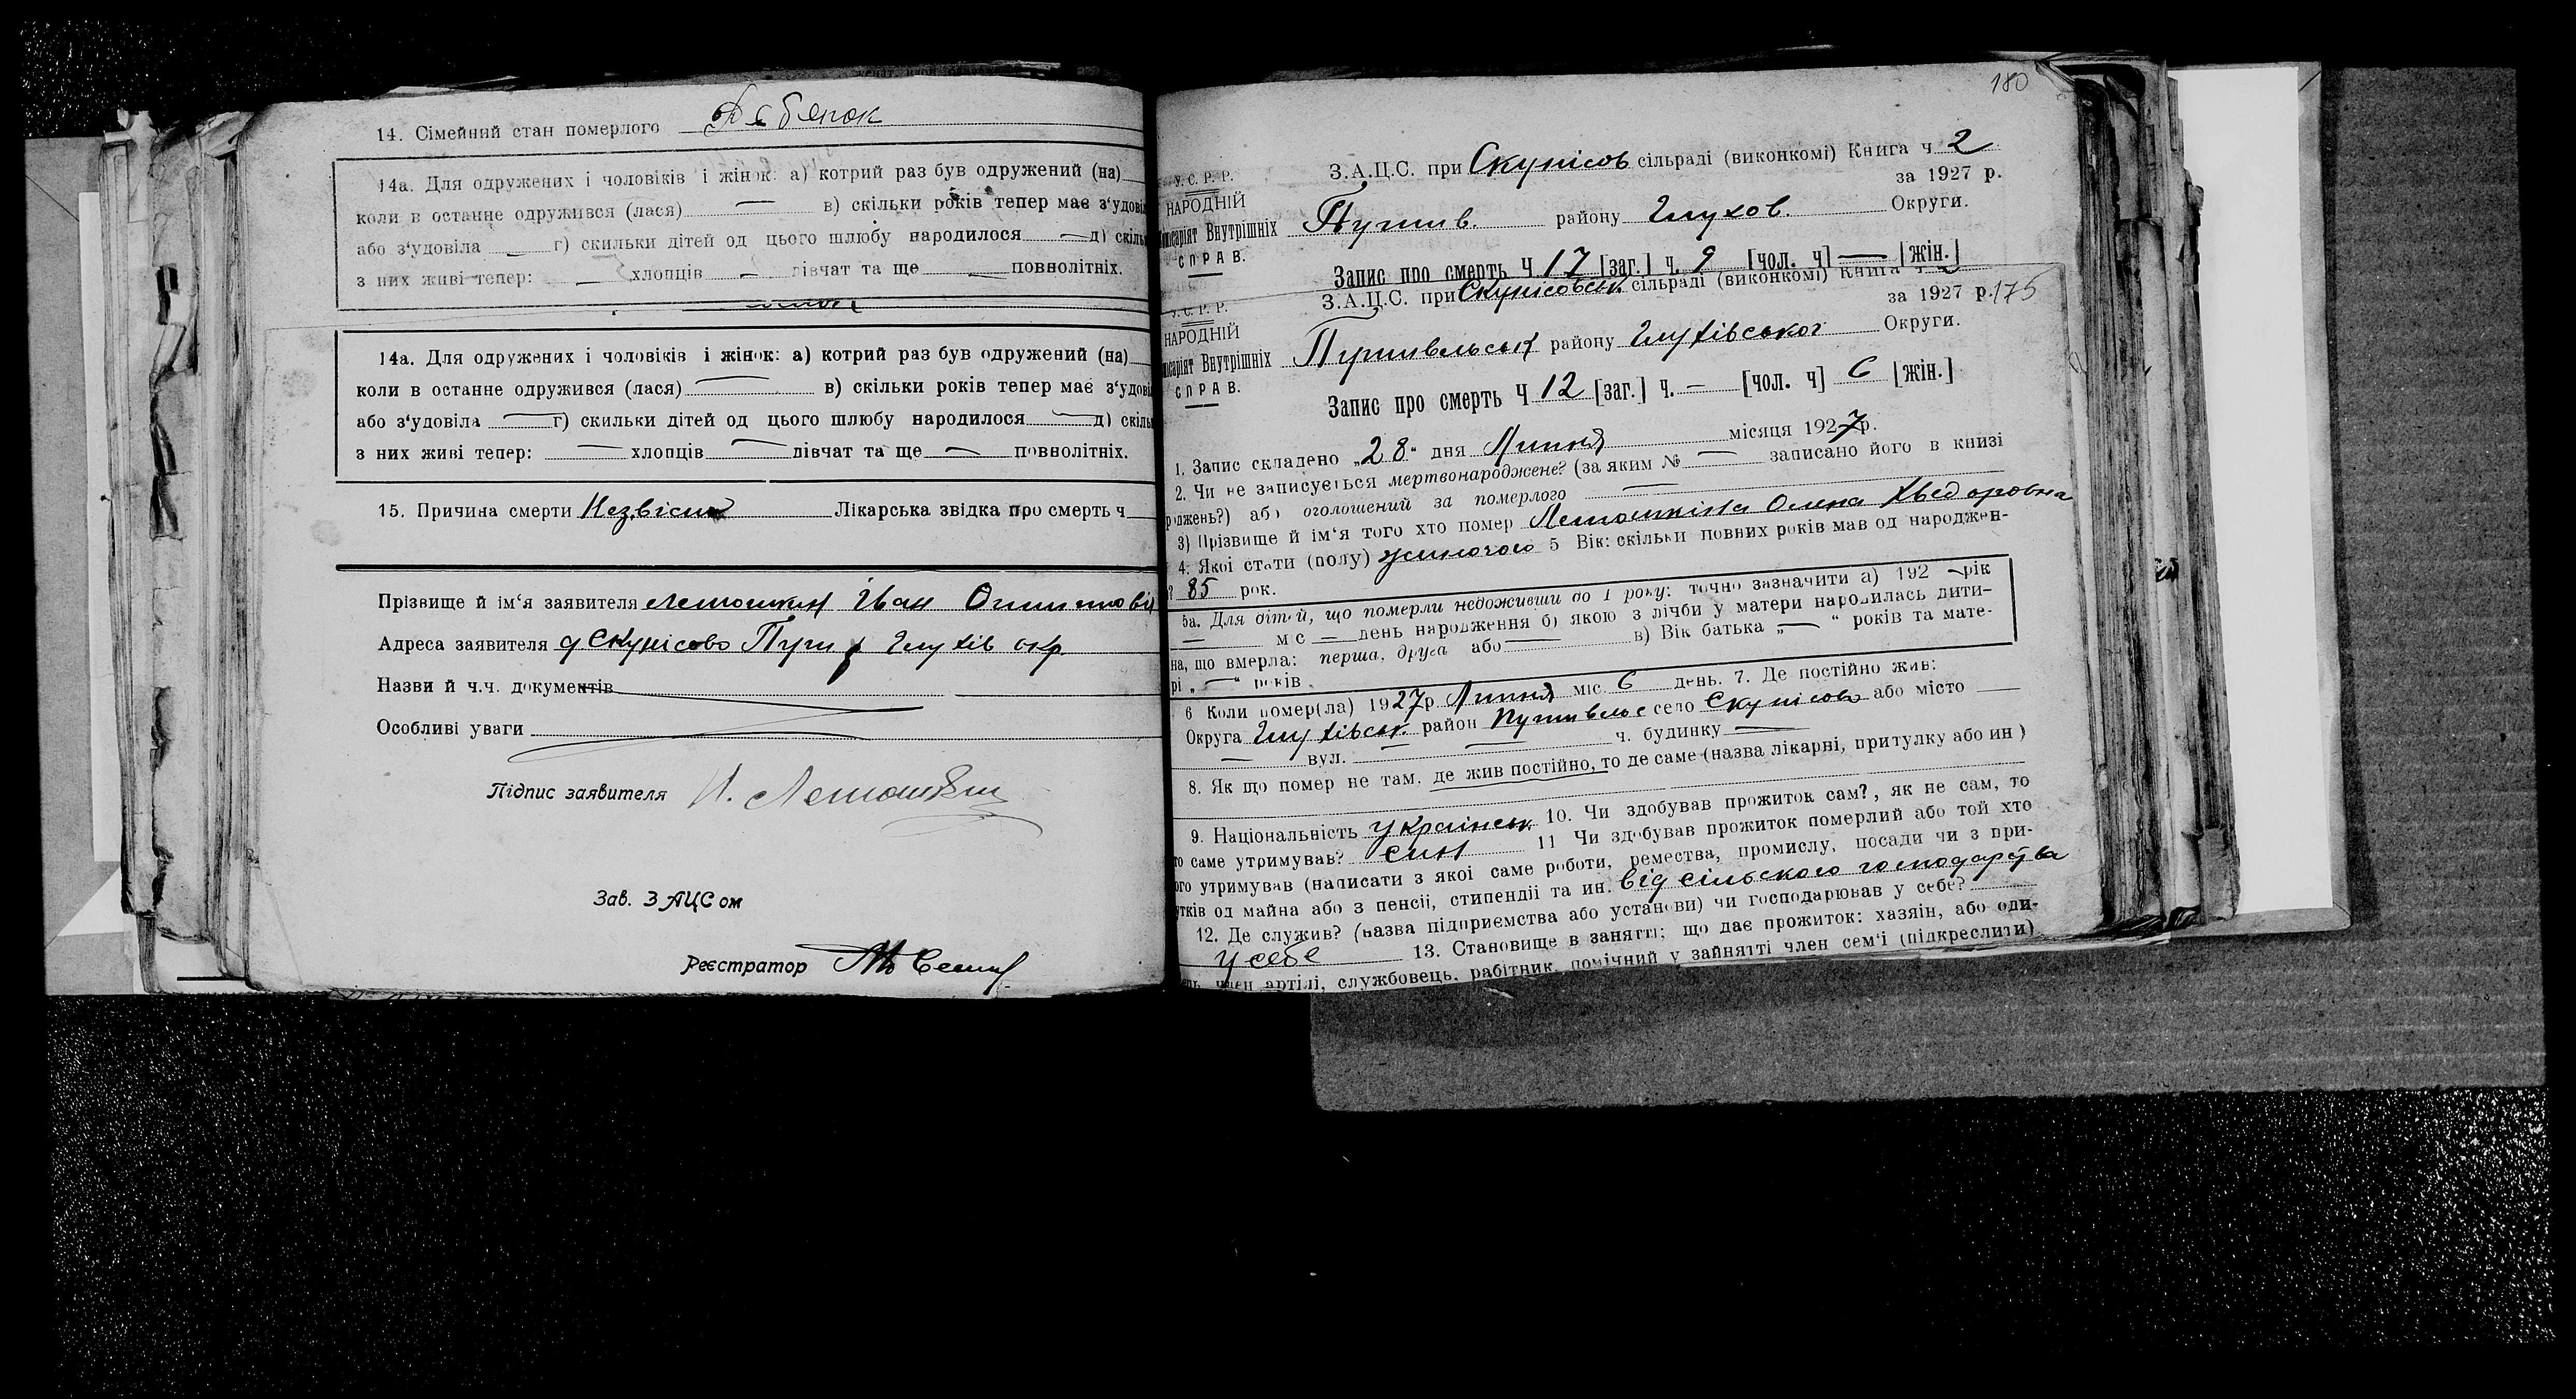 14. Сімейний стан померлого
14а. Для одружених і чоловіків і жінок: а) котрий раз був одружений (на)
коли в останне одружився (лася) — в) скільки років тепер має з'удові
або з'удовіла — г) скильки дітей од цього шлюбу народилося — д) скіль
з них живі тепер: — хлопців — дівчат та ще — повнолітніх.
14а. Для одружених і чоловіків і жінок: а) котрий раз був одружений (на)
коли в останне одружився (лася) — в) скільки років тепер має з'удові
або з'удовіла — г) скильки дітей од цього шлюбу народилося — д) скіль
з них живі тепер: — хлопців — дівчат та ще — повнолітніх.
15. Причина смерти Лікарська звідка про смерть ч
Прізвище й ім'я заявителя Летошкин Іван
Адреса заявителя Скунісово Глухів окр.
Назви й ч.ч. документів
Особливі уваги
Підпис заявителя
Зав. ЗАЦСом
Реєстратор
180
З.А.Ц.С. при Скунісов сільраді (виконкомі) Книга ч 2
У.С.Р.Р. за 1927 р.
НАРОДНІЙ
місаріят Внутрішніх Путив. району Глухов. Округи.
СПРАВ.
Запис про смерть Ч 17 [заг.] ч. 9 [чол. ч] — [жін.]
З.А.Ц.С. при Скунісовськ сільраді (виконкомі) Книга ч
У.С.Р.Р. за 1927 р. 175
НАРОДНІЙ
місаріят Внутрішніх Путивельськ району Глухівськог Округи.
СПРАВ.
Запис про смерть Ч 12 [заг.] ч. — [чол. ч] 6 [жін.]
1. Запис складено „28" дня Липня місяця 1927 р.
2. Чи не записується мертвонароджене? (за яким № — записано його в книзі
роджень?) або оголошений за померлого —
3) Прізвище й ім'я того хто помер Летошкіна Олена Хведоровна
4. Якої стати (полу) жиночого 5 Вік: скільки повних років мав од народжен-
? 85 рок.
5а. Для дітей, що померли недоживши до 1 року: точно зазначити а) 192 — рік
— м с — день народження б) якою з лічби у матери народилась дити-
на, що вмерла: перша, друга або — в) Вік батька „—" років та мате-
рі „—" років.
6 Коли помер(ла) 1927 р. Липня міс 6 день. 7. Де постійно жив:
Округа Глухівськ. район Путивльс село Скунісово або місто —
— вул. — ч. будинку —
8. Як що помер не там, де жив постійно, то де саме (назва лікарні, притулку або ин)
9. Національність українськ. 10. Чи здобував прожиток сам?, як не сам, то
то саме утримував? син 11 Чи здобував прожиток померлий або той хто
ого утримував (написати з якої саме роботи, ремества, промислу, посади чи з при-
утків од майна або з пенсії, стипендії та ин. від сільского господарства
12. Де служив? (назва підприемства або установи) чи господарював у себе?
у себе 13. Становище в занятті: що дає прожиток: хазяін, або оди-
член артілі, службовець, рабітник, помічний у зайнятті член сем'ї (підкреслити)